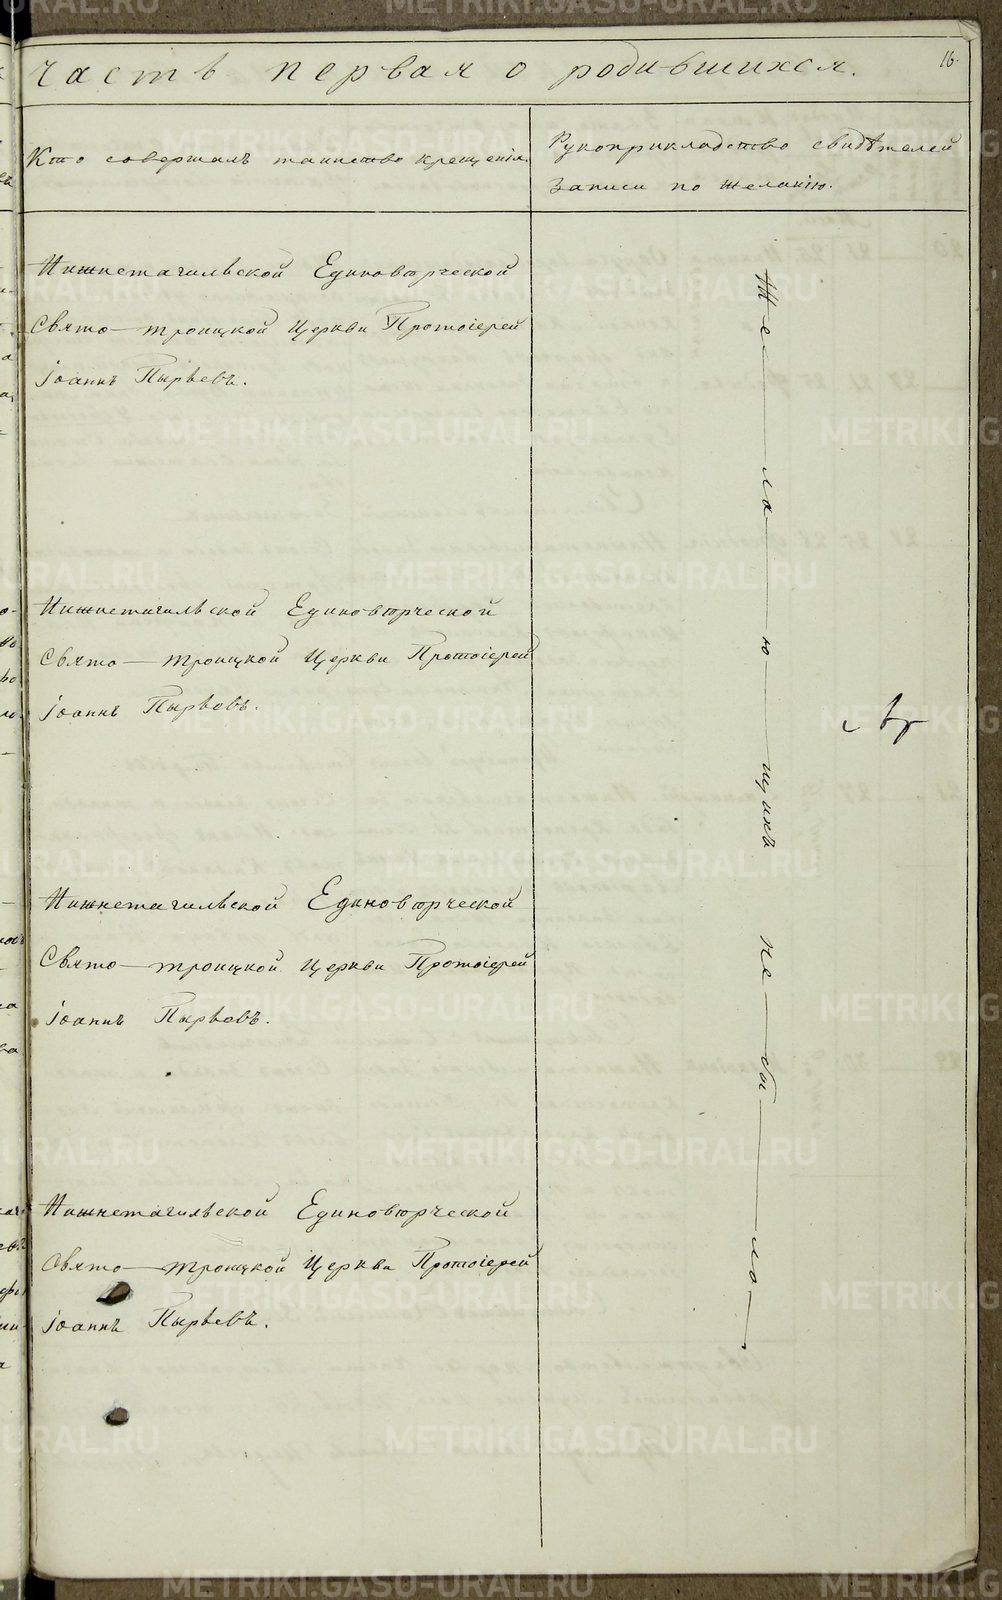 Часть первая о родившихся.
16.
Кто совершалъ таинство крещенія.
Рукоприкладство свидѣтелей
записи по желанію.
Нижнетагильской Единовѣрческой
Свято-Троицкой Церкви Протоіерей
Іоаннъ Пырьевъ.
Нижнетагильской Единовѣрческой
Свято-Троицкой Церкви Протоіерей
Іоаннъ Пырьевъ.
Нижнетагильской Единовѣрческой
Свято-Троицкой Церкви Протоіерей
Іоаннъ Пырьевъ.
Нижнетагильской Единовѣрческой
Свято-Троицкой Церкви Протоіерей
Іоаннъ Пырьевъ.
Же-ла-ю-щихъ не-бы-ло
METRIKI.GASO-URAL.RU